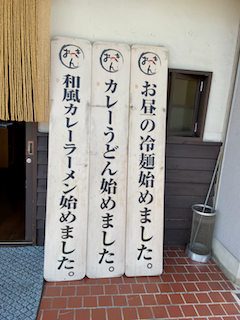 お昼の冷麺始めました。
カレーうどん始めました。
和風カレーラーメン始めました。